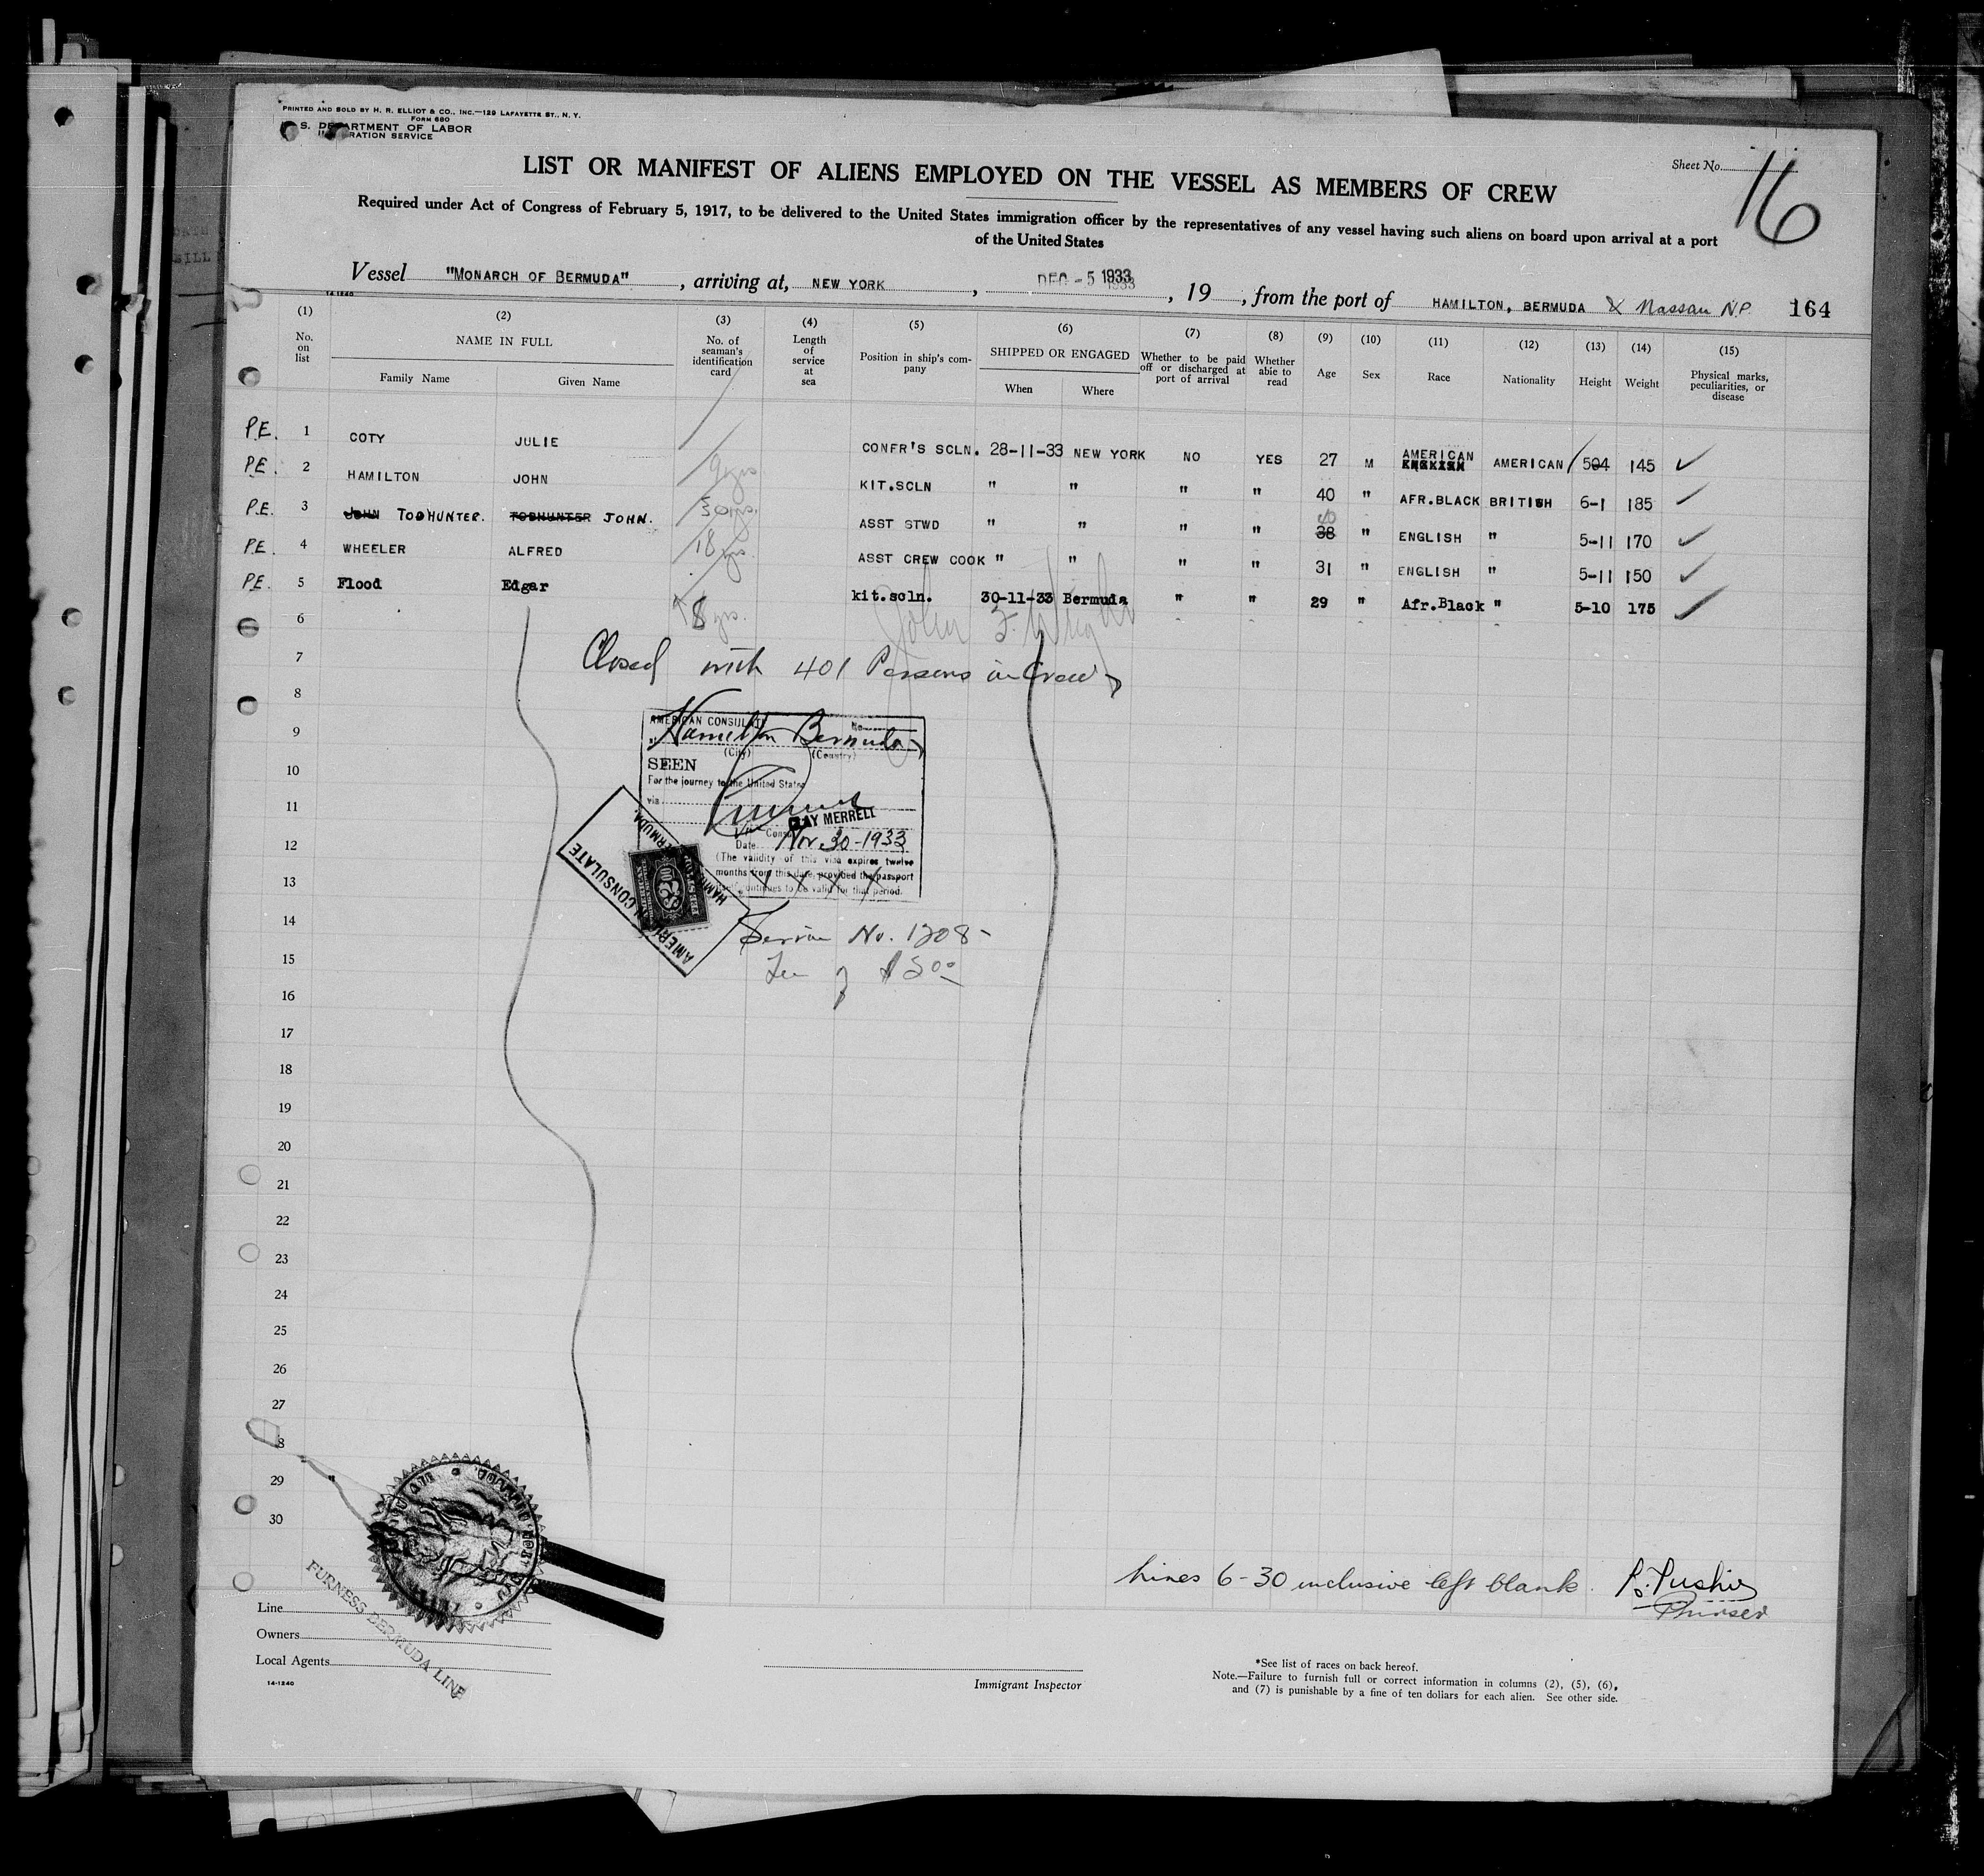 PRINTED AND SOLD BY H. R. ELLIOT & CO., INC.—129 LAFAYETTE ST., N. Y.
FORM 680
S. DEPARTMENT OF LABOR
IMMIGRATION SERVICE
Sheet No. 16
LIST OR MANIFEST OF ALIENS EMPLOYED ON THE VESSEL AS MEMBERS OF CREW
Required under Act of Congress of February 5, 1917, to be delivered to the United States immigration officer by the representatives of any vessel having such aliens on board upon arrival at a port
of the United States
Vessel "MONARCH OF BERMUDA", arriving at, NEW YORK, DEC - 5 1933, 19, from the port of HAMILTON, BERMUDA & Nassau N.P. 164
14-1240
(1) No. on list (2) NAME IN FULL Family Name Given Name (3) No. of seaman's identification card (4) Length of service at sea (5) Position in ship's company (6) SHIPPED OR ENGAGED When Where (7) Whether to be paid off or discharged at port of arrival (8) Whether able to read (9) Age (10) Sex (11) Race (12) Nationality (13) Height (14) Weight (15) Physical marks, peculiarities, or disease
P.E. 1 COTY JULIE CONFR'S SCLN. 28-11-33 NEW YORK NO YES 27 M AMERICAN ENGLISH AMERICAN 504 145 ✓
P.E. 2 HAMILTON JOHN 9 yrs KIT.SCLN " " " " 40 " AFR.BLACK BRITISH 6-1 185 ✓
P.E. 3 JOHN TODHUNTER. TODHUNTER JOHN. 30 yrs. ASST STWD " " " " 40 38 " ENGLISH " 5-11 170 ✓
P.E. 4 WHEELER ALFRED 18 yrs. ASST CREW COOK " " " " 31 " ENGLISH " 5-11 150 ✓
P.E. 5 Flood Edgar 8 yrs. kit.scln. 30-11-33 Bermuda " " 29 " Afr.Black " 5-10 175 ✓
John F. Wright
6
7 Closed with 401 Persons in Crew
8
9
10
11
12
13
14
15
16
17
18
19
20
21
22
23
24
25
26
27
8
29
30
AMERICAN CONSULATE No.
Hamilton Bermuda
(City) (Country)
SEEN
For the journey to the United States
via
CLAY MERRELL
Vice Consul
Date Nov 30-1933
(The validity of this visa expires twelve
months from this date, provided the passport
itself continues to be valid for that period.
AMERICAN CONSULATE
HAMILTON, BERMUDA.
AMERICAN
FEE STAMP
Service No. 1208-
Fee of $2.00
Lines 6-30 inclusive left blank.
Purser
Line
Owners
Local Agents
FURNESS BERMUDA LINE
14-1240
Immigrant Inspector
*See list of races on back hereof.
Note.—Failure to furnish full or correct information in columns (2), (5), (6),
and (7) is punishable by a fine of ten dollars for each alien. See other side.